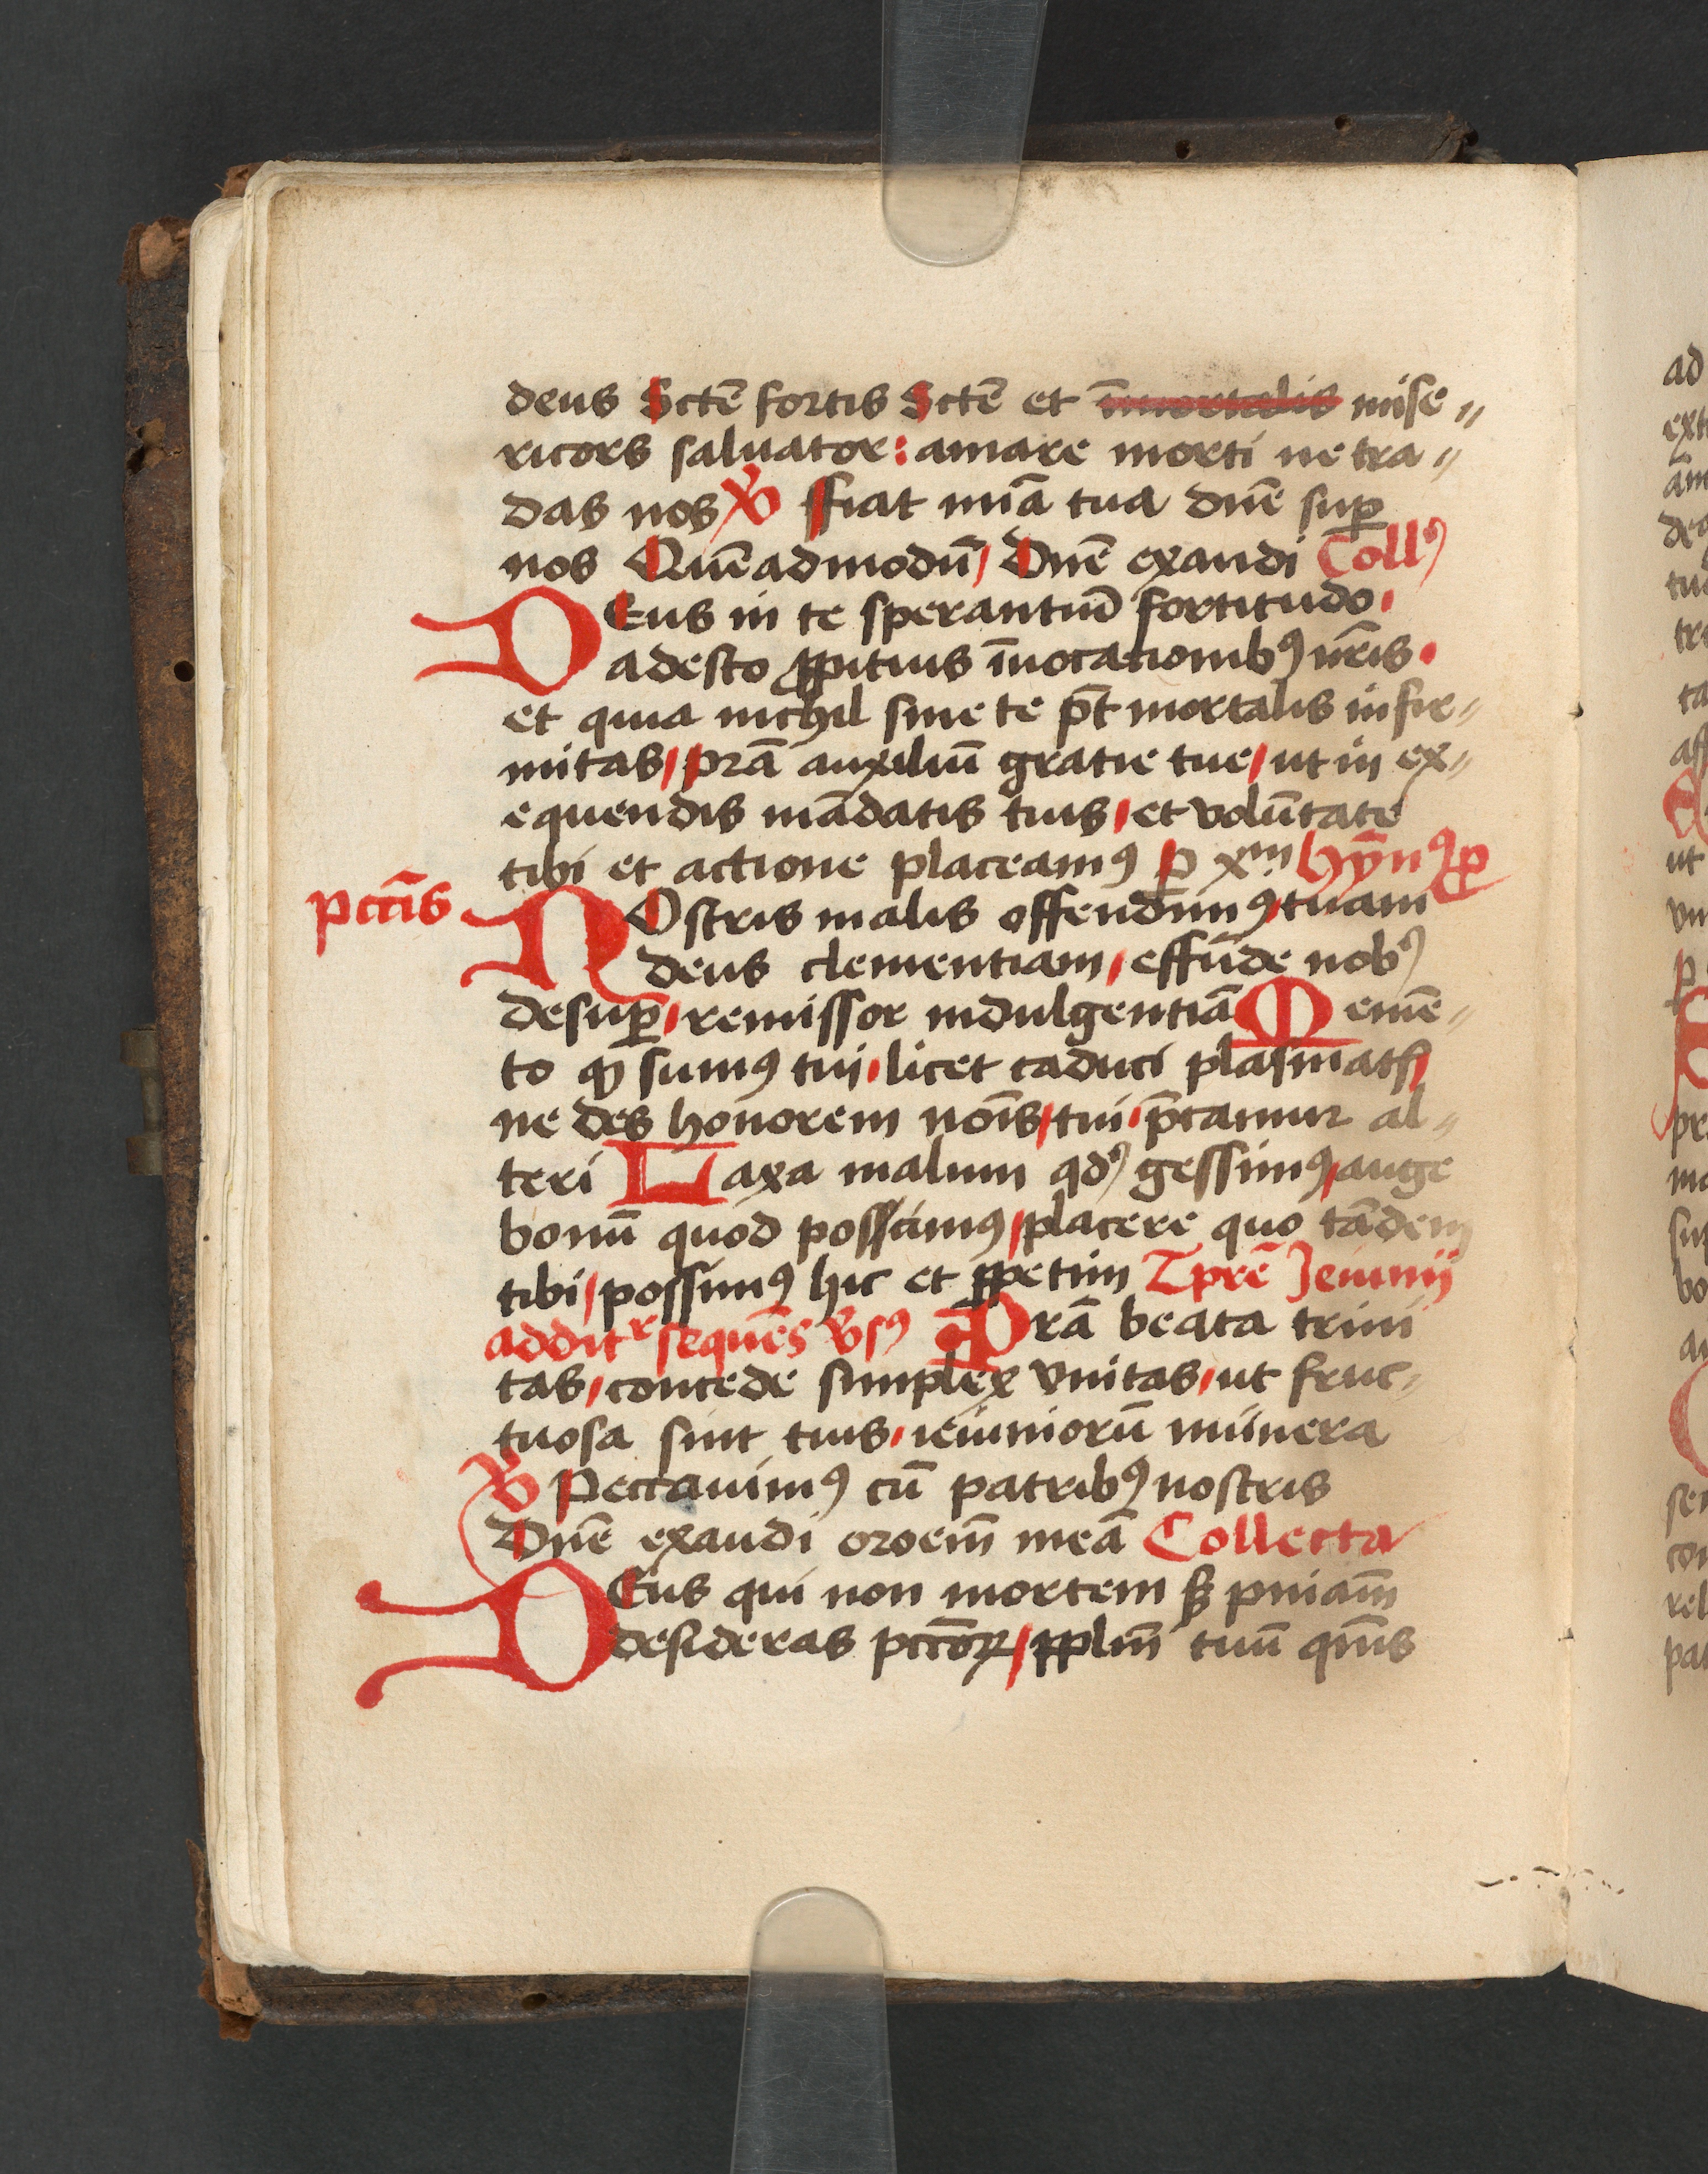 deus Sctē fortis Sctē et īmortalis mise〃
ricors saluator: amare morti ne tra〃
das nos ℣ ffiat mīa tua dnē suꝑ
nos Quēadmodū/ Dnē exaudi Collꝰ
DEus in te sperantiū fortitudo.
adesto ꝓpitius īuocationibꝰ nr̄is.
et quia nichil sine te pt̄ mortalis infir〃
mitas/ pr̄a auxiliū gratie tue/ ut in ex〃
equendis mādatis tuis/ et volūtate
tibi et actione placeamꝰ P xm̄ hȳnꝰ ꝓ
pcc̄is
NOstris malis offendimꝰ/ tuam
deus clementiam/ effūde nobꝰ
desuꝑ/ remissor indulgentiā Memē〃
to ꝙ sumꝰ tui/ licet caduci plasmatꝭ
ne des honorem noīs/ tui/ p̄camur al〃
teri Laxa malum qdꝰ gessimꝰ/ auge
bonū quod possimus/ placere quo tādem
tibi/ possimꝰ hic et ꝑpetim Tpre Jeiunij
addit᷑ sequēs v̄sꝰ Pr̄a beata trini
tas/ concede simplex vnitas/ ut fruc〃
tuosa sint tuis/ ieiuniorū munera
℣ Peccauimꝰ cū patribꝰ nostris
Dnē exaudi oroem̄ meā Collecta
DEus qui non mortem sꝫ pniam̄
desideras pcc̄oꝝ/ ꝑplm̄ tuū qm̄s